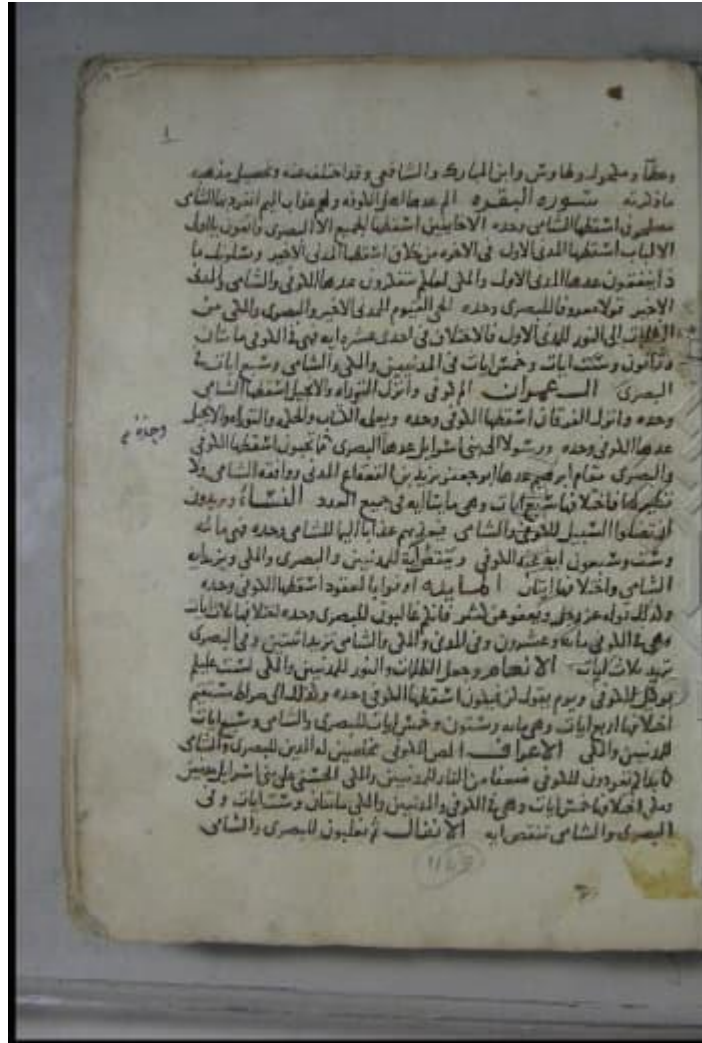 وعطا و مكحول وطاوس وابن المبارك والشافعي وقد اختلف عنه وتحصيل مذهبه
ما ذكرته سورة البقرة الم عدها اهل الكوفة ولهم عذاب اليم انفرد بها الشامى
مصلحون اسقطها الشامى وحده الا خايفين اسقطها الجميع الا البصرى واتقون ياولى
الالباب اسقطها المدنى الاول فى الاخره من خلاق اسقطها المدنى الاخير ويسلونك ما
ذا ينفقون عدها المدنى الاول والمكى لعلكم تتفكرون عدها الكوفى والشامى والمدنى
الاخير قولا معروفا للبصرى وحده الحى القيوم المدنى الاخير والبصرى والمكى من
الظلمات الى النور للمدنى الاول فالاختلاف فى احدى عشره ايه فهى فى الكوفى مايتان
وثمانون وست ايات وخمس ايات فى المدنيين والمكى والشامى وسبع ايات فى
البصرى ال عمران الم كوفى وانزل التوراه والانجيل اسقطها الشامى
وحده وانزل الفرقان اسقطها الكوفى وحده ويعلمه الكتاب والحكمه والتوراه والانجيل
وحده
عدها الكوفى وحده ورسولا الى بنى اسرايل عدها البصرى مما تحبون اسقطها الكوفى
والبصرى مقام ابرهيم عدها ابو جعفر يزيد بن القعقاع المدنى ووافقه الشامى ولا
نظير لها فاختلافها سبع ايات وهى مايتا ايه فى جميع العدد النساء ويريدون
ان تضلوا السبيل للكوفى والشامى فيعذبهم عذابا اليما للشامى وحده فهى مائه
وست وسبعون ايه عند الكوفى وينقص ايه للمدنيين والبصرى والمكى ويزيد ايه
الشامى واختلافها ايتان المايده اوفوا بالعقود اسقطها الكوفى وحده
وكذلك قوله عز وجل ويعفو عن كثير فانكم غالبون للبصرى وحده اختلافها ثلاث ايات
وهى فى الكوفى مايه وعشرون وفى المدنى والمكى والشامى تزيد اثنتين وفى البصرى
تزيد ثلاث ايات الانعام وجعل الظلمات والنور للمدنيين والمكى لست عليكم
بوكيل للكوفى ويوم يقول كن فيكون اسقطها الكوفى وحده وكذلك الى صراط مستقيم
اختلافها اربع ايات وهى مايه وستون وخمس ايات للكوفى وست ايات للبصرى والشامى وسبع ايات
للمدنيين والمكى الاعراف المص للكوفى مخلصين له الدين للبصرى والشامى
كما بداكم تعودون للكوفى ضعفا من النار للمدنيين والمكى الحسنى على بنى اسرايل مدنيين
ومكى اختلافها خمس ايات وهى فى الكوفى والمدنيين والمكى مايتان وست ايات وفى
البصرى والشامى تنقص ايه الانفال ثم يغلبون للبصرى والشامى